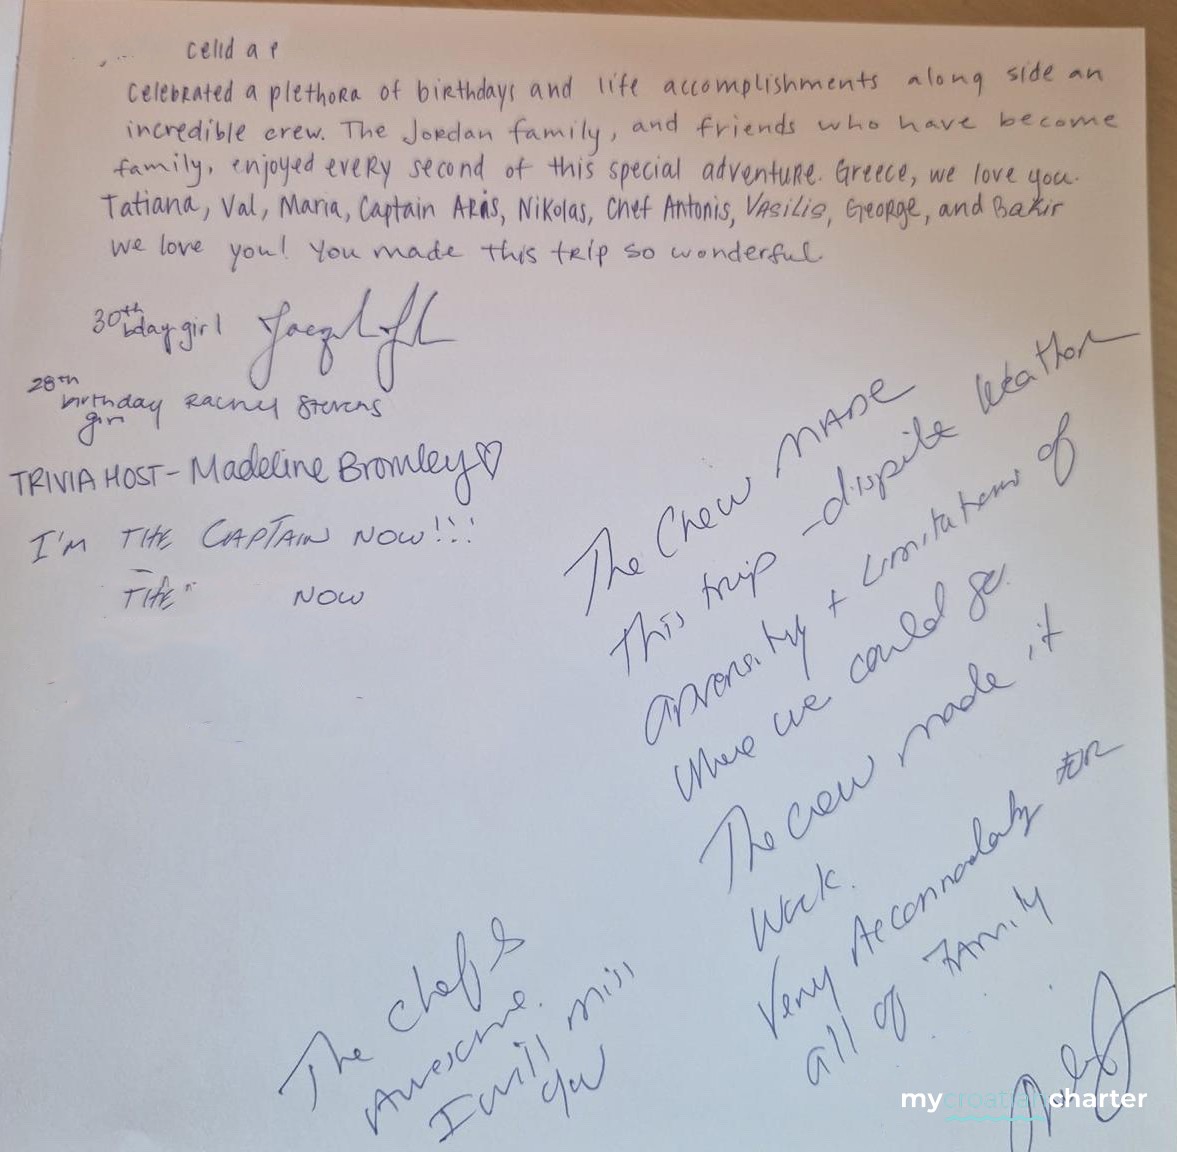 celld a p
Celebrated a plethora of birthdays and life accomplishments along side an
incredible crew. The Jordan family, and friends who have become
family, enjoyed every second of this special adventure. Greece, we love you.
Tatiana, Val, Maria, Captain Aris, Nikolas, Chef Antonis, Vasilis, George, and Bakir
we love you! You made this trip so wonderful.
30th bday girl
28th birthday girl Rachel Stevens
TRIVIA HOST - Madeline Bromley♡
I'M THE CAPTAIN NOW!!!
THE" NOW
The Crew MADE
This trip - dispite Weather
+ Limitations of
where we could go.
The crew made it
Work.
Very Accommodating FOR
all of FAMILY
The chef is
Awesome.
I will miss
you
mycroatiancharter